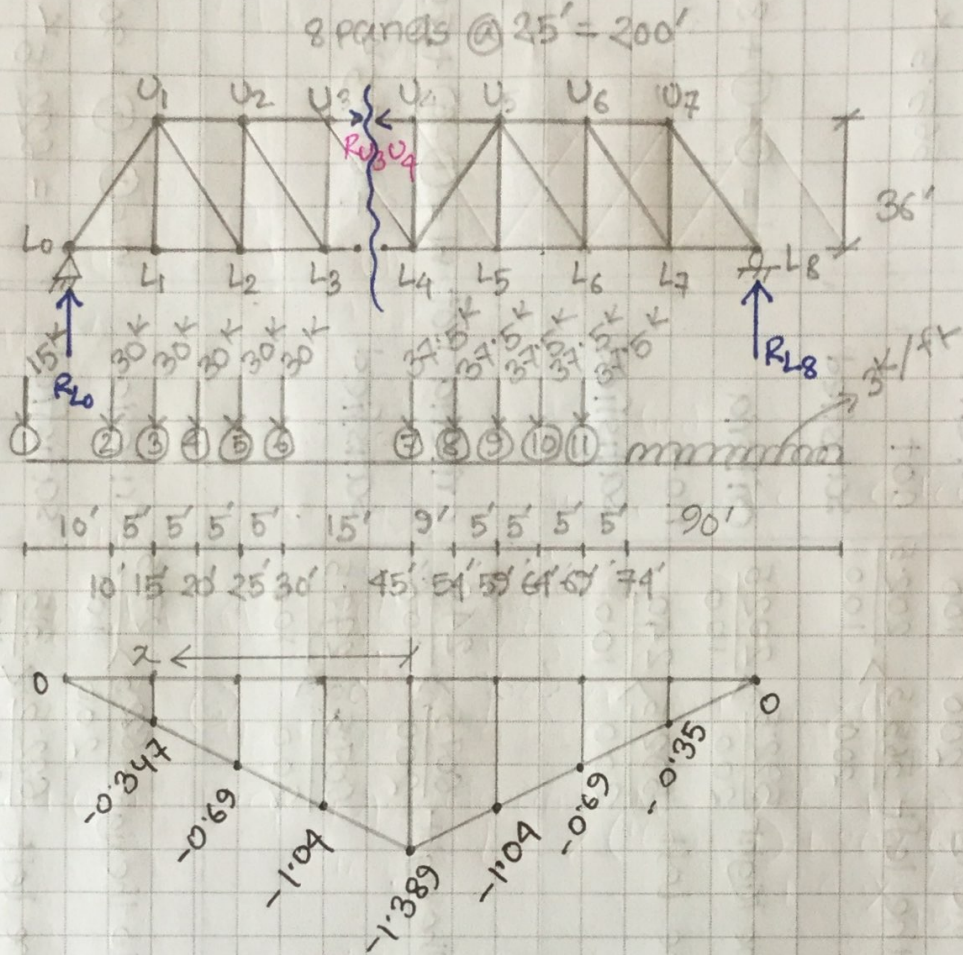 8 panels @ 25' = 200'
U1 U2 U3 U4 U5 U6 U7
RU3U4
36'
L0 L1 L2 L3 L4 L5 L6 L7 L8
15K 30K 30K 30K 30K 30K 37.5K 37.5K 37.5K 37.5K 37.5K
RL0 RL8 3K/ft
1 2 3 4 5 6 7 8 9 10 11
10' 5' 5' 5' 5' 15' 9' 5' 5' 5' 5' 90'
10' 15' 20' 25' 30' 45' 54' 59' 64' 69' 74'
x
0 0
-0.347 -0.69 -1.04 -1.389 -1.04 -0.69 -0.35